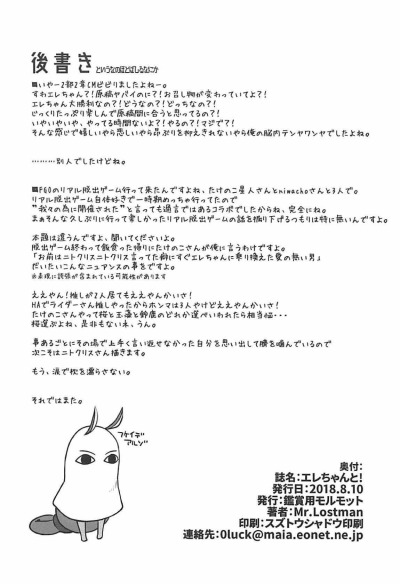 後書きというなのほとばしるなにか
■いやー2部2章CMビビりましたよねー。
すわエレちゃん?!原稿ヤバイのに?!お召し物が変わっていてよ?!
エレちゃん大勝利なの?!どうなの?!どっちなの?!
じっくりたっぷり楽しんで原稿間に合うと思ってるの?!
いやいやいや、やってる時間ないよ!やるの?!マジで?!
そんな感じで嬉しいやら悲しいやら昂ぶりを抑えきれないやら俺の脳内テンヤワンヤでしたよね。
………別人でしたけどね。
■FGOのリアル脱出ゲーム行って来たんですよね、たけのこ星人さんとniwachoさんと3人で。
リアル脱出ゲーム自体好きで一時期めっちゃ行ってたので
"我々の為に開催された"と言っても過言ではあるコラボでしたからね、完全にね。
まぁそんな久しぶりに行って楽しかったリアル脱出ゲームの話を掘り下げるつもりは特に無いんですよ。
本題は違うんですよ、聞いてくださいよ。
脱出ゲーム終わって飯食った帰りにたけのこさんが俺に言うわけですよ。
「お前はニトクリスニトクリス言ってた癖にすぐエレちゃんに乗り換えた愛の無い男」
だいたいこんなニュアンスの事をですよ。
※表現に誇張が含まれている可能性があります
ええやん!推しが2人居てもええやんかいさ!
HAでライダーさん推しやったからホンマは3人やけどええやんかいさ!
たけのこさんやって桜と玉藻と鈴鹿のどれか選べいわれたら相当悩…
桜選ぶよね、是非もないネ、うん。
事あるごとにその場で上手く言い返せなかった自分を思い出して臍を噛んでいるので
次こそはニトクリスさん描きます。
もう、涙で枕を濡らさない。
それではまた。
フケイデアルゾ
奥付:
誌名:エレちゃんと!
発行日:2018.8.10
発行:鑑賞用モルモット
著者:Mr.Lostman
印刷:スズトウシャドウ印刷
連絡先:0luck@maia.eonet.ne.jp